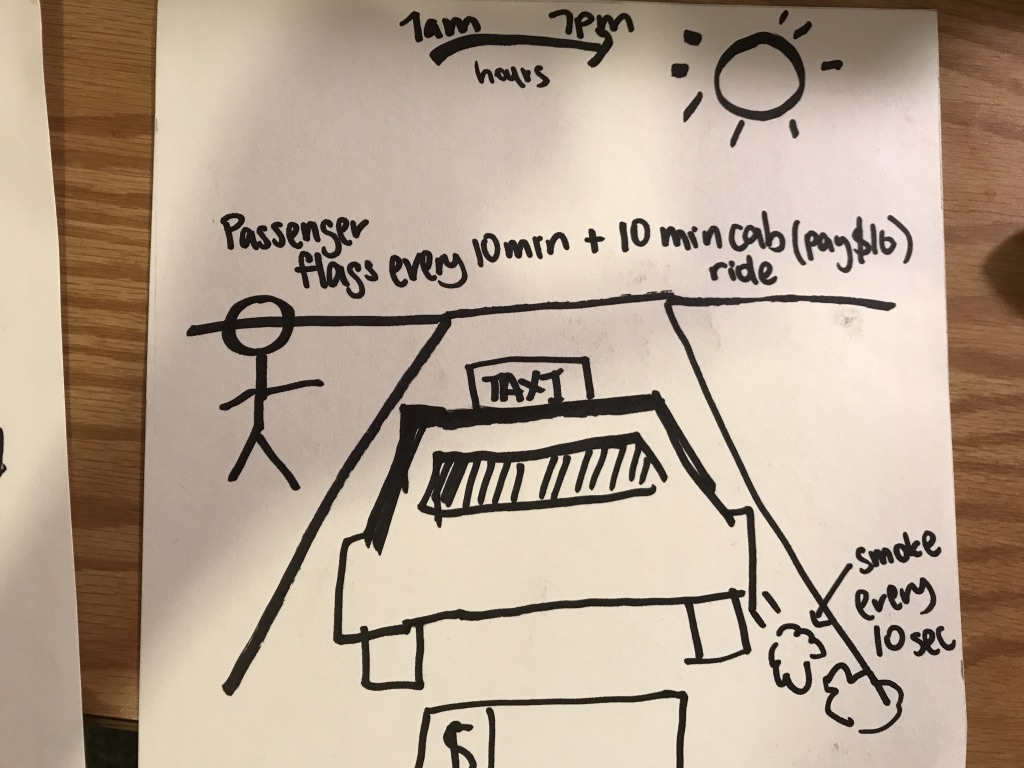 7am 7pm
hours
Passenger
flags every 10 min + 10 min cab (pay $16)
ride
TAXI
smoke
every
10 sec
$